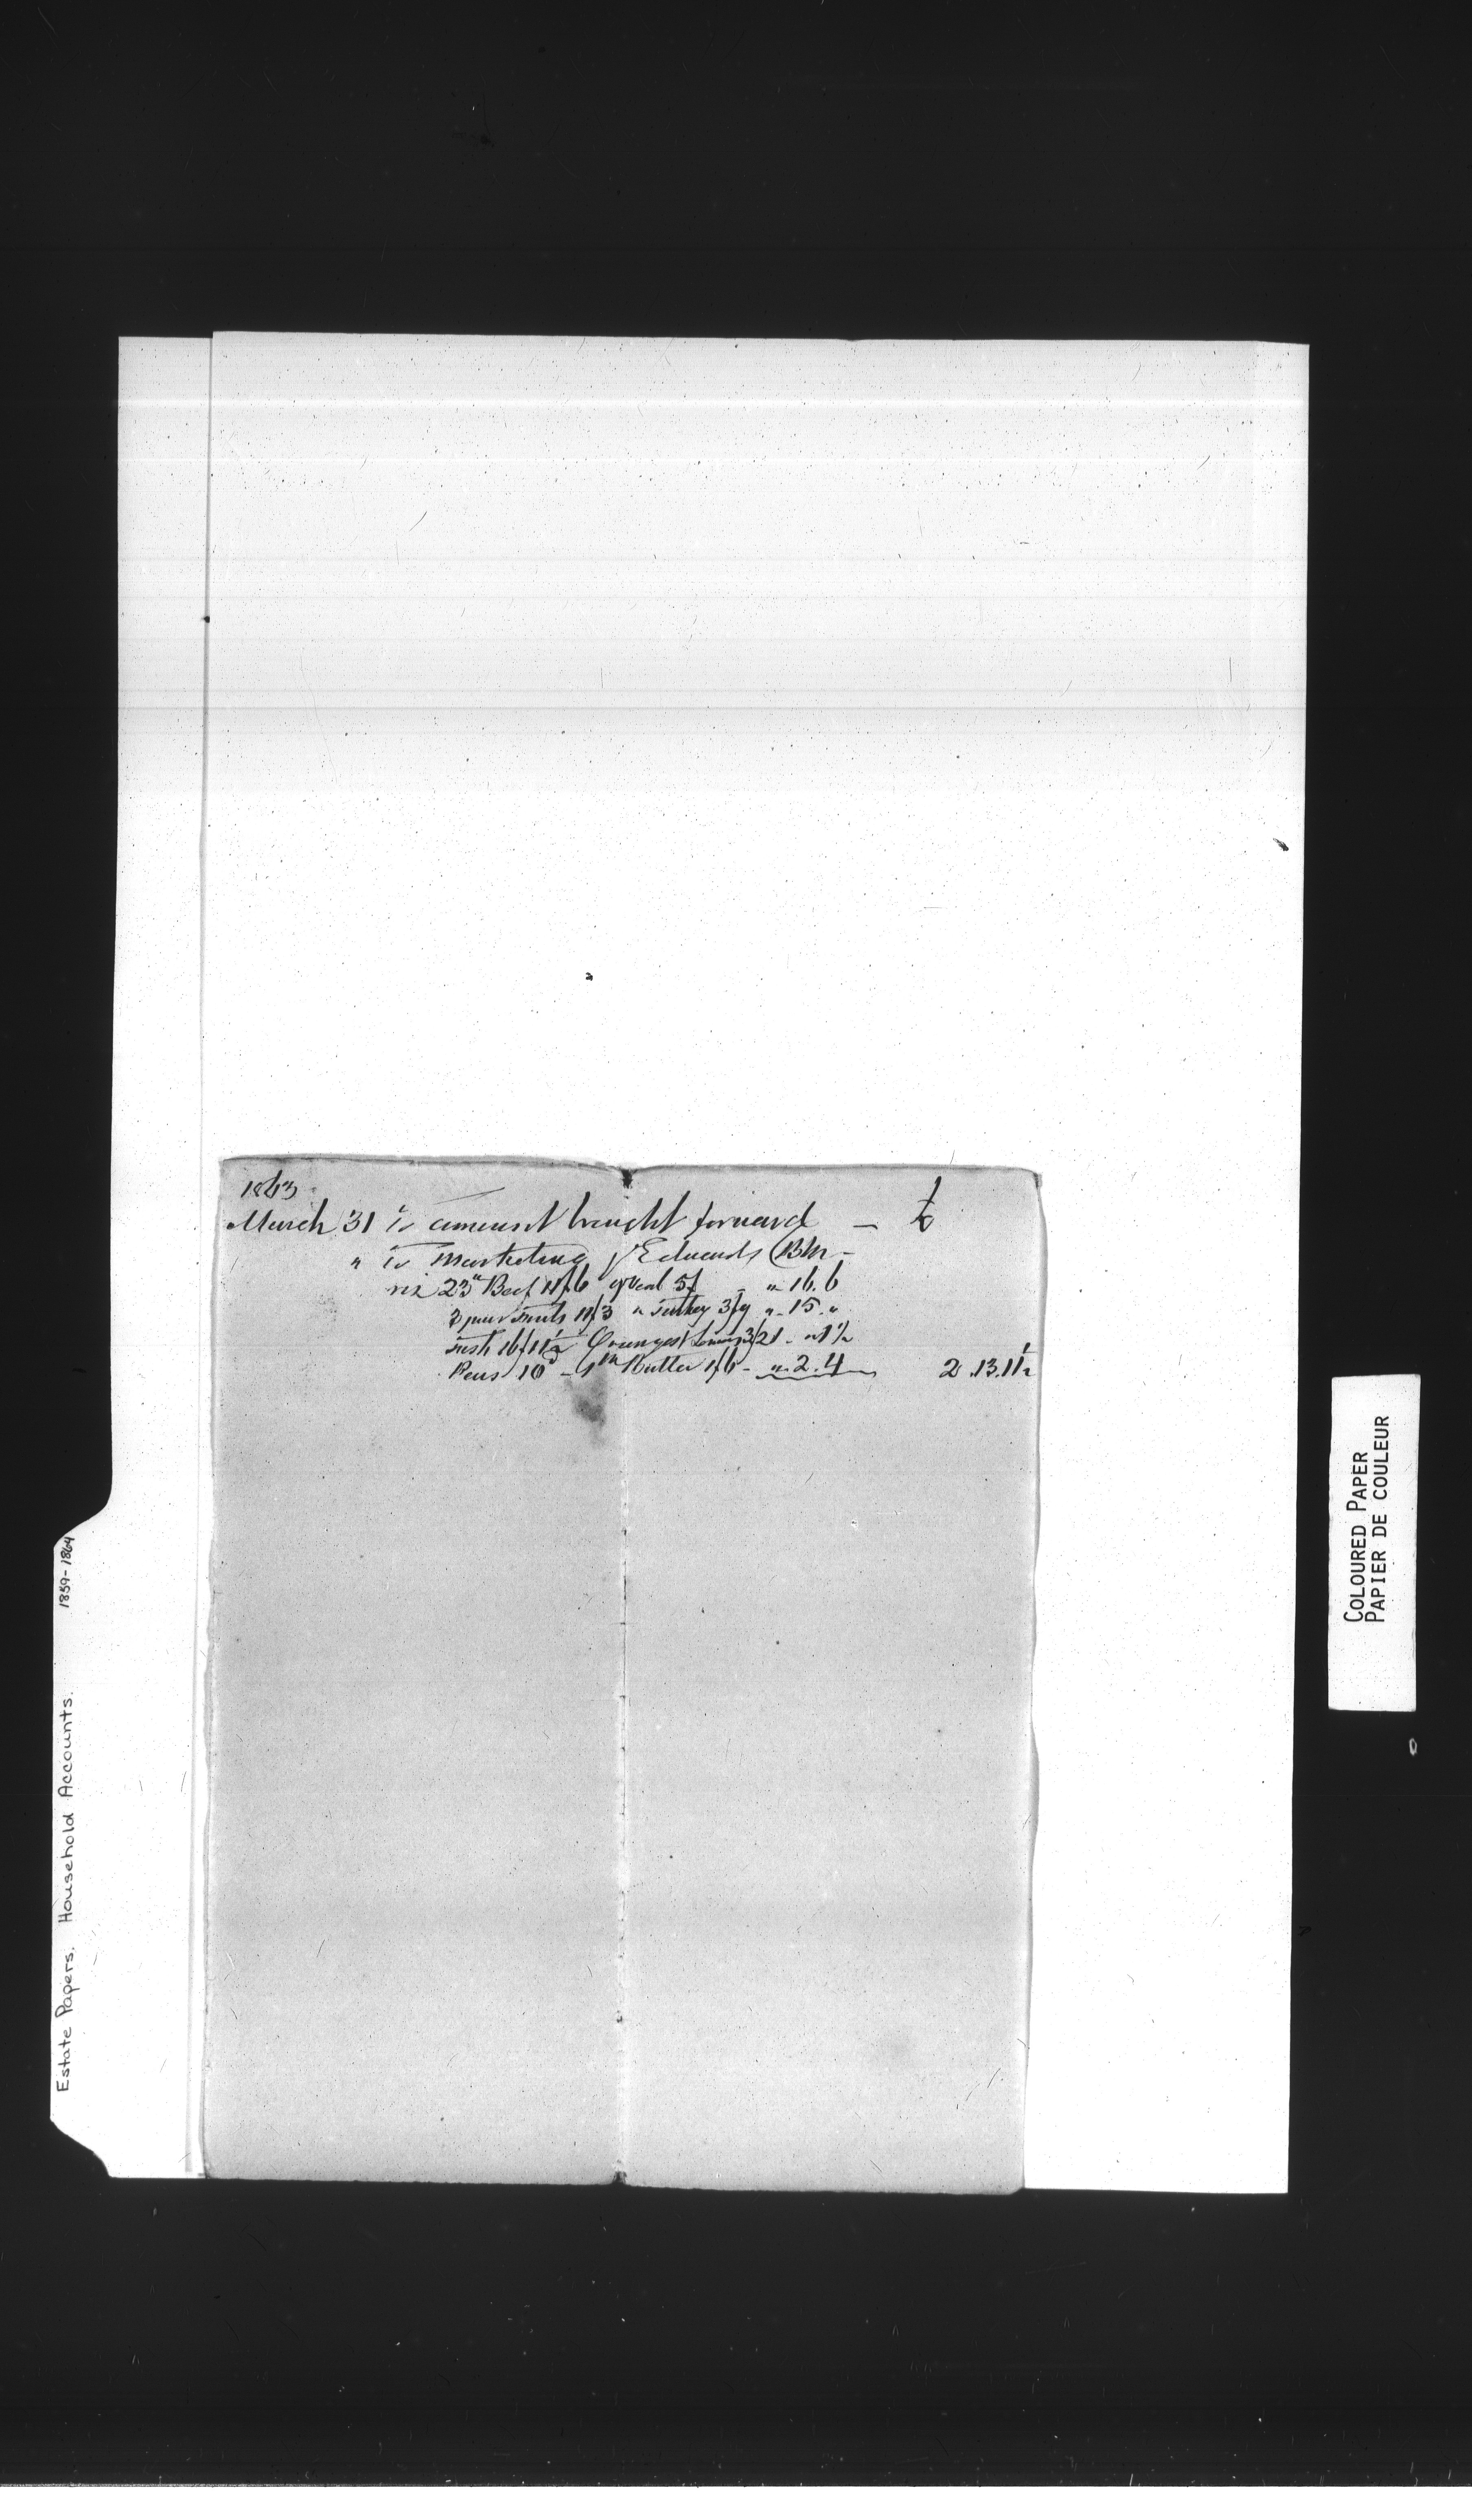 1863
March 31 To amount brought forward — £
" To Marketing pr Edwards
viz 23 lb Beef 11/6 qr Veal 5/ - " 16.6
2 pair 11/3 " Turkey 3/9 " 15 "
11½ Oranges 3/2
Peas 10d - 1 lb Butter 1/6 - " 2.4 2.13.11½
Estate Papers. Household Accounts. 1859-1864
COLOURED PAPER
PAPIER DE COULEUR